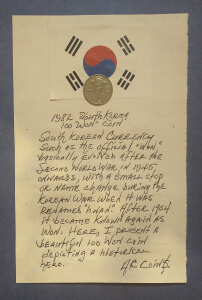 1982 South Korea
100 "Won" Coin
South Korean Currency
Such as the official "Won"
basically evolved after the
Second World War in 1945-
onwards, with a small stop
or name change during the
Korean War when it was
renamed "hwan". After 1954
it became known again as
Won. Here, I present a
beautiful 100 Won coin
depicting a historical
hero.
Coins